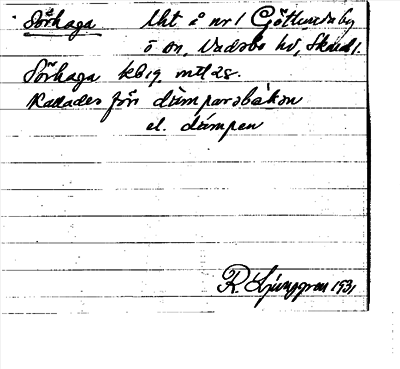 Sörhaga lht å nr 1 Götlunda by
o sn, Vadsbo hd, Skarab. l.
Sörhaga kbl9. mtl 28.
Kallades förr dämparebäken
el. dämpen
R. Ljunggren 1931